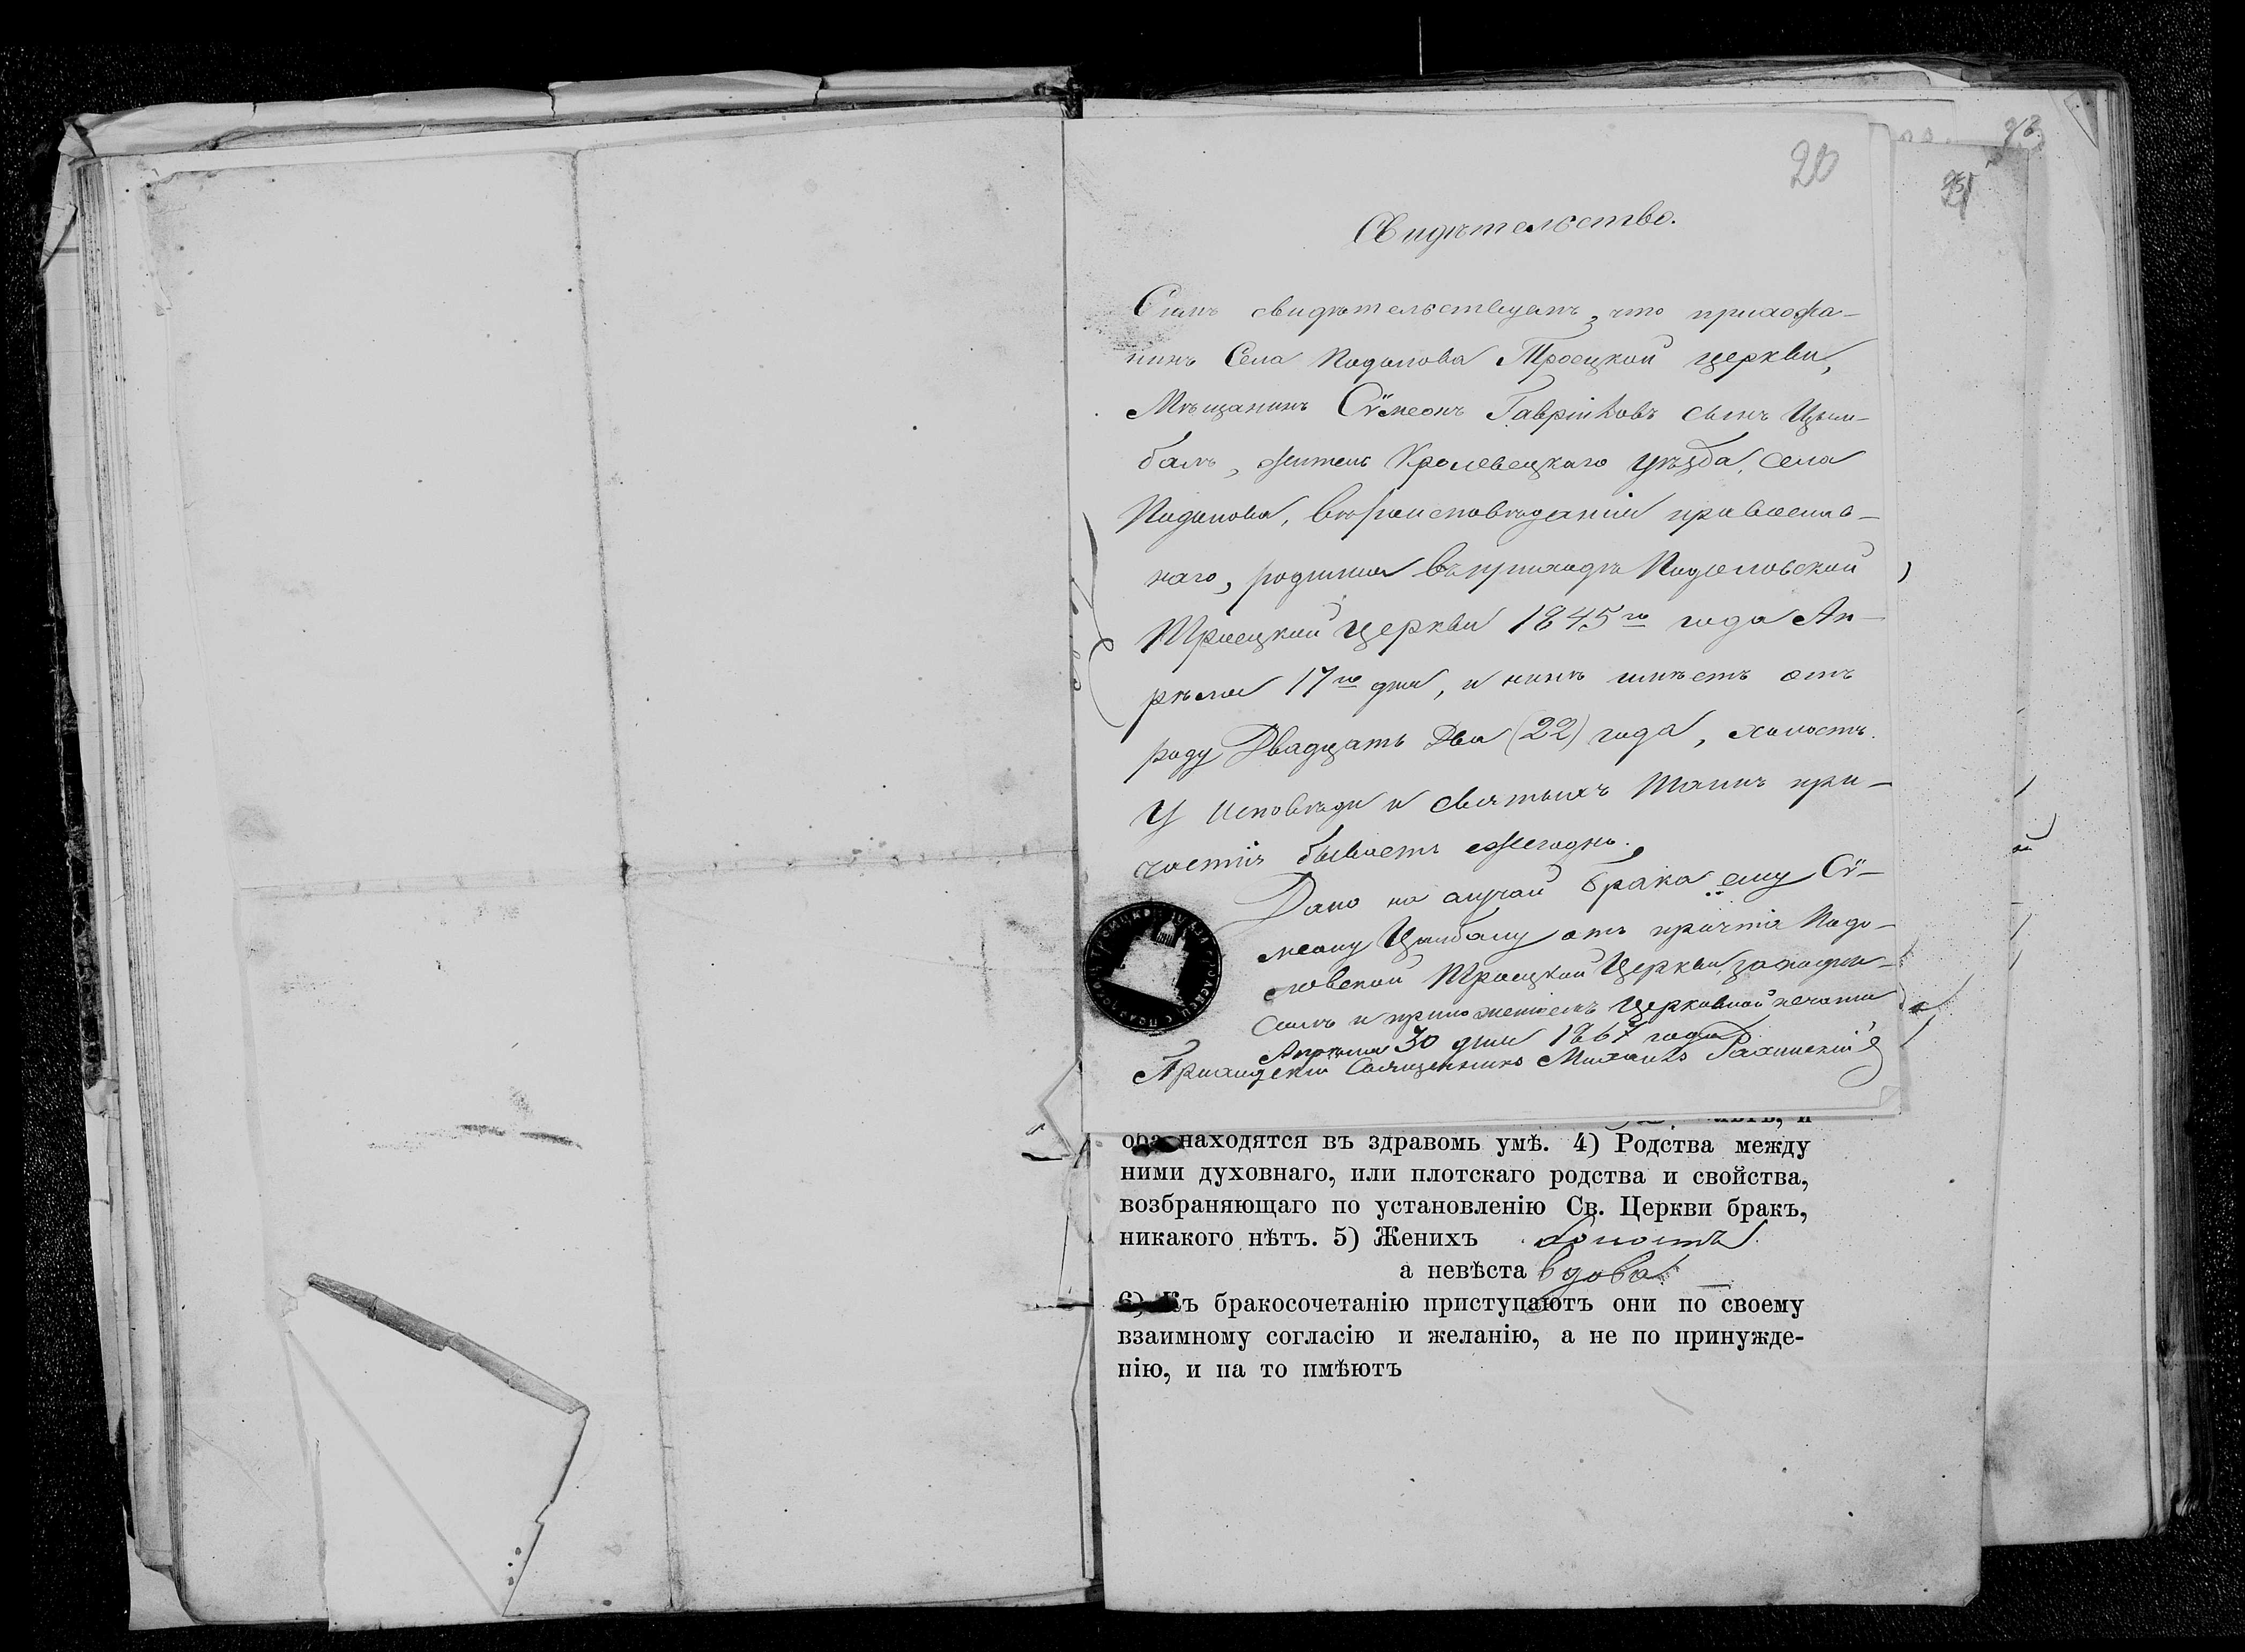 20
21
Свидѣтельство.
Симъ свидѣтельствуемъ, что прихожа-
нинъ Села Подолова Троецкой церкви,
Мѣщанинъ Сѵмеонъ Гавріиловъ сынъ Цим-
балъ, житель Кролевецкаго уѣзда, села
Подолова, вѣроисповѣданія православ-
наго, родился въ приходѣ Подоловской
Троецкой церкви 1845го года Ап-
рѣля 17го дня, и нынѣ имѣетъ отъ
роду Двадцать Два (22) года, холостъ.
У Исповѣди и святыхъ Таинъ при-
частія бываетъ ежегодно.
Дано на случай брака ему Сѵ-
меону Цимбалу отъ причта Подо-
ловской Троецкой Церкви, за подпи-
сомъ и приложеніемъ Церковной печати
Апрѣля 30 дня 1867 года
Приходскій Священникъ Михаилъ
оба находятся въ здравомъ умѣ. 4) Родства между
ними духовнаго, или плотскаго родства и свойства,
возбраняющаго по установленію Св. Церкви бракъ,
никакого нѣтъ. 5) Женихъ холостъ
а невѣста вдова.
6) Къ бракосочетанію приступаютъ они по своему
взаимному согласію и желанію, а не по принужде-
нію, и на то имѣютъ